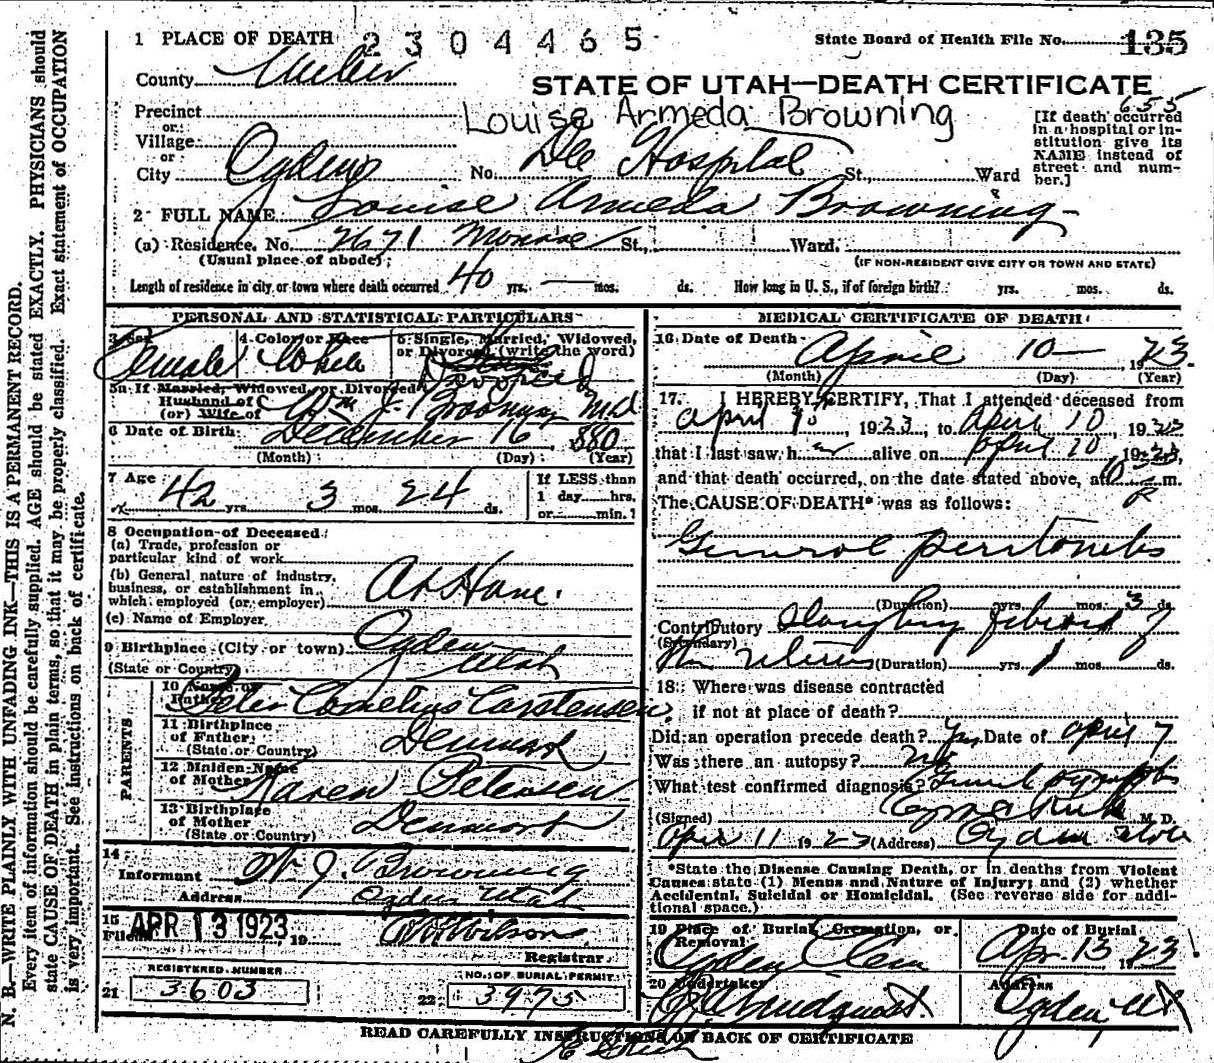 1 PLACE OF DEATH 2304465 State Board of Health File No. 135
County Weber
STATE OF UTAH—DEATH CERTIFICATE
655
Precinct
Louise Armeda Browning
[If death occurred in a hospital or institution give its NAME instead of street and number.]
or
Village
or
City Ogden No. Dee Hospital St., Ward
2 FULL NAME Louise Armeda Browning
(a) Residence, No. 2671 Monroe St., Ward.
(Usual place of abode) (IF NON-RESIDENT GIVE CITY OR TOWN AND STATE)
Length of residence in city or town where death occurred 40 yrs. — mos. ds. How long in U. S., if of foreign birth? yrs. mos. ds.
PERSONAL AND STATISTICAL PARTICULARS
3 Sex Female 4 Color or Race White 5 Single, Married, Widowed, or Divorced (write the word) Divorced
5a If Married, Widowed, or Divorced
Husband of
(or) Wife of Wm J. Browning
6 Date of Birth December 16 1880
(Month) (Day) (Year)
7 Age 42 yrs. 3 mos. 24 ds.
If LESS than 1 day hrs. or min.?
8 Occupation of Deceased:
(a) Trade, profession or particular kind of work
(b) General nature of industry, business, or establishment in which employed (or employer) At Home.
(c) Name of Employer
9 Birthplace (City or town) Ogden
(State or Country) Utah
PARENTS
10 Name of Father Peter Cornelius Carstensen
11 Birthplace of Father (State or Country) Denmark
12 Maiden Name of Mother Karen Petersen
13 Birthplace of Mother (State or Country) Denmark
14
Informant W. J. Browning
Address Ogden Utah
15 Filed APR 13 1923, 19
Wilson
Registrar
REGISTERED NUMBER
21 3603
NO. OF BURIAL PERMIT
22 3975
MEDICAL CERTIFICATE OF DEATH
16 Date of Death April 10— , 1923
(Month) (Day) (Year)
17. I HEREBY CERTIFY, That I attended deceased from
April , 1923, to April 10, 1923
that I last saw her alive on April 10, 1923,
and that death occurred, on the date stated above, at 10 P m.
The CAUSE OF DEATH* was as follows:
General peritonitis
(Duration) yrs. mos. 3 ds.
Contributory Sloughing fibroid of
(Secondary)
the uterus (Duration) yrs. 1 mos. ds.
18 Where was disease contracted
if not at place of death?
Did an operation precede death? Yes Date of April 7
Was there an autopsy? No
What test confirmed diagnosis?
(Signed) M. D.
Apr 11 1923 (Address) Ogden Utah
*State the Disease Causing Death, or in deaths from Violent Causes state (1) Means and Nature of Injury; and (2) whether Accidental, Suicidal or Homicidal. (See reverse side for additional space.)
19 Place of Burial, Cremation, or Removal Ogden Cem
Date of Burial Apr. 13 1923
20 Undertaker Lindquist
Address Ogden Ut
READ CAREFULLY INSTRUCTIONS ON BACK OF CERTIFICATE
N. B.—WRITE PLAINLY WITH UNFADING INK—THIS IS A PERMANENT RECORD.
Every item of information should be carefully supplied. AGE should be stated EXACTLY. PHYSICIANS should
state CAUSE OF DEATH in plain terms, so that it may be properly classified. Exact statement of OCCUPATION
is very important. See instructions on back of certificate.